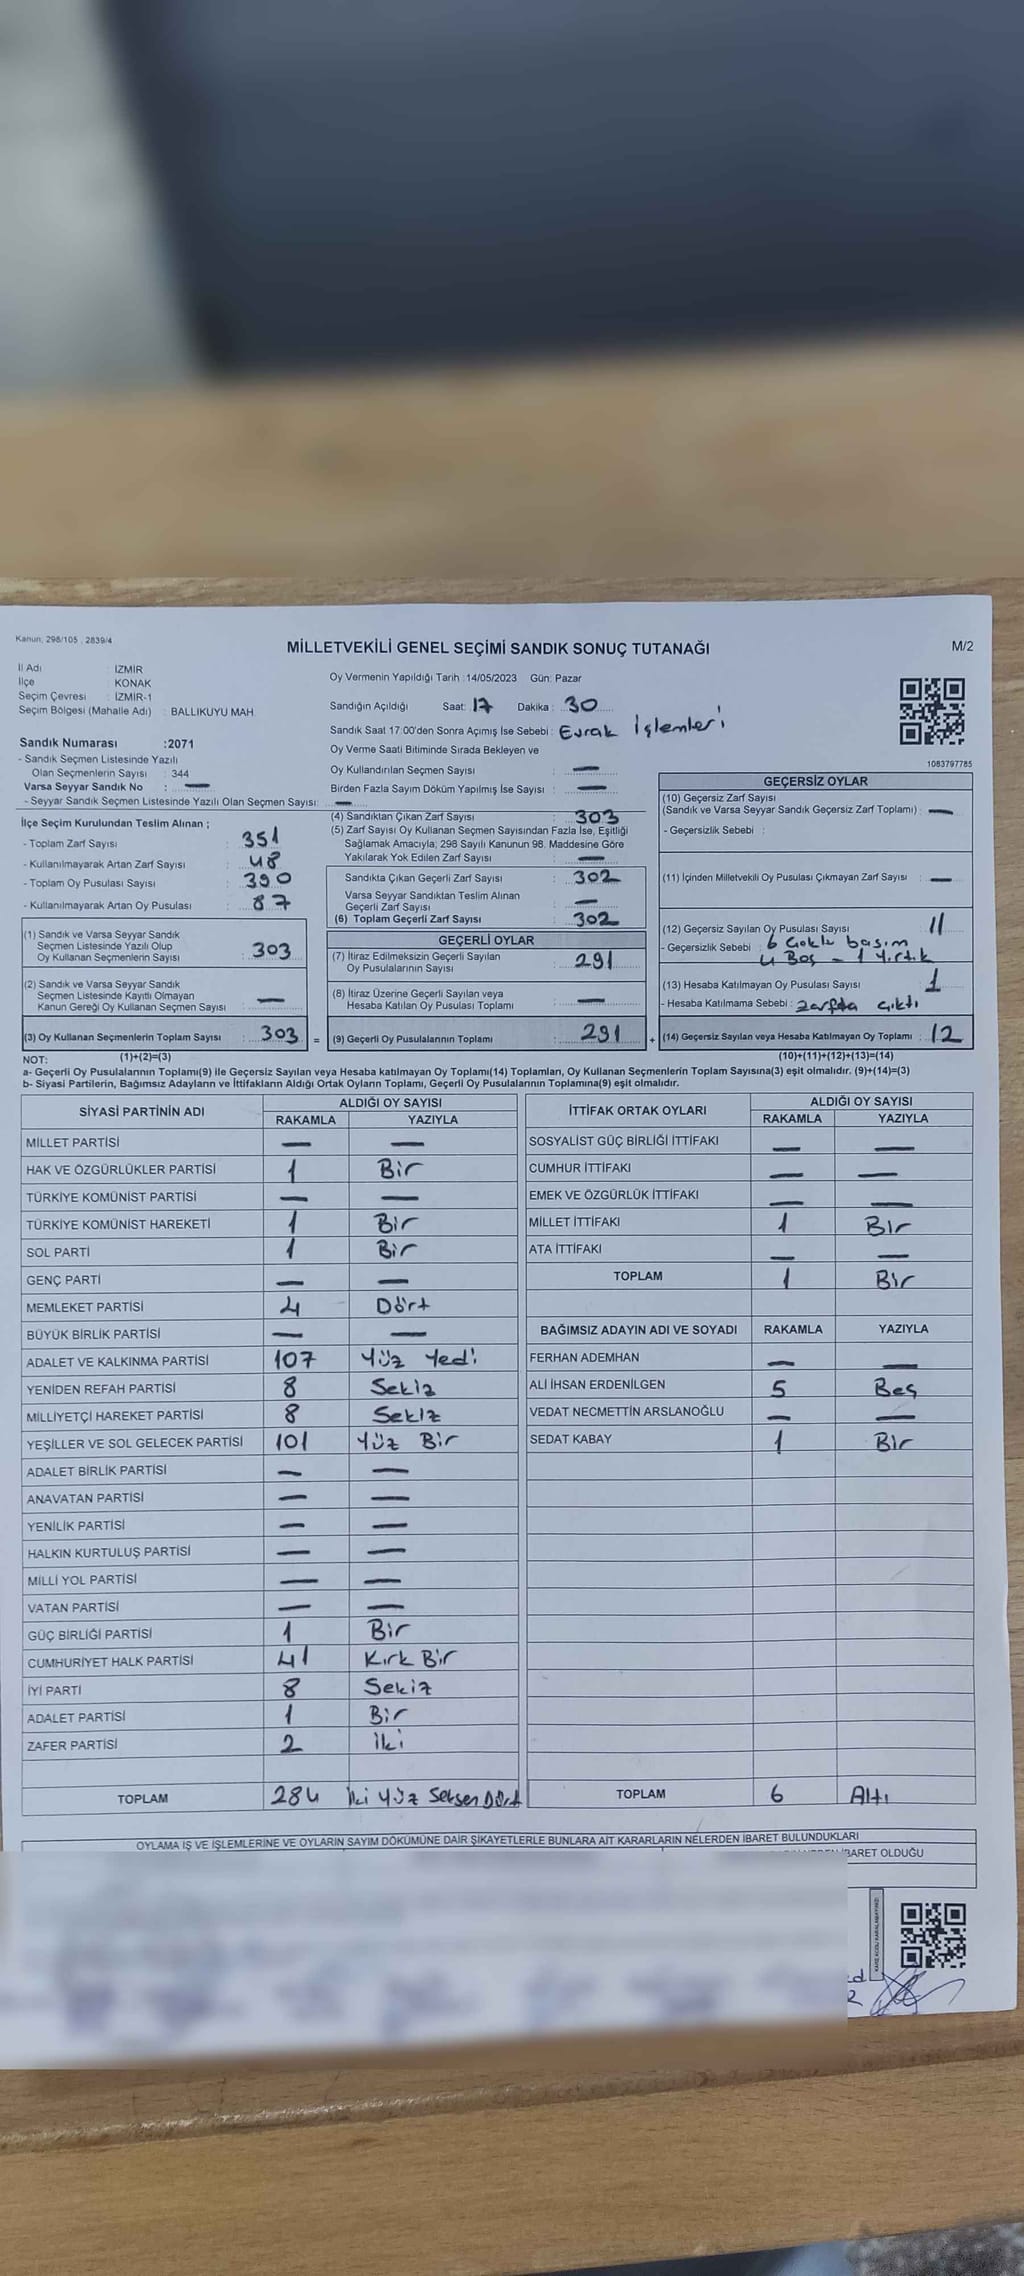 Kanun, 298/105 , 2839/4
MİLLETVEKİLİ GENEL SEÇİMİ SANDIK SONUÇ TUTANAĞI
M/2
İl Adı : İZMİR
İlçe : KONAK
Seçim Çevresi : İZMİR-1
Seçim Bölgesi (Mahalle Adı) : BALLIKUYU MAH.
Sandık Numarası :2071
- Sandık Seçmen Listesinde Yazılı
Olan Seçmenlerin Sayısı : 344
Varsa Seyyar Sandık No : —
- Seyyar Sandık Seçmen Listesinde Yazılı Olan Seçmen Sayısı: —
Oy Vermenin Yapıldığı Tarih :14/05/2023 Gün: Pazar
Sandığın Açıldığı Saat: 17 Dakika : 30
Sandık Saat 17:00'den Sonra Açımış İse Sebebi : Evrak İşlemleri
Oy Verme Saati Bitiminde Sırada Bekleyen ve
Oy Kullandırılan Seçmen Sayısı : —
Birden Fazla Sayım Döküm Yapılmış İse Sayısı : —
1083797785
İlçe Seçim Kurulundan Teslim Alınan ;
- Toplam Zarf Sayısı : 351
- Kullanılmayarak Artan Zarf Sayısı : 48
- Toplam Oy Pusulası Sayısı : 390
- Kullanılmayarak Artan Oy Pusulası : 87
(1) Sandık ve Varsa Seyyar Sandık
Seçmen Listesinde Yazılı Olup
Oy Kullanan Seçmenlerin Sayısı : 303
(2) Sandık ve Varsa Seyyar Sandık
Seçmen Listesinde Kayıtlı Olmayan
Kanun Gereği Oy Kullanan Seçmen Sayısı : —
(3) Oy Kullanan Seçmenlerin Toplam Sayısı : 303 =
(4) Sandıktan Çıkan Zarf Sayısı : 303
(5) Zarf Sayısı Oy Kullanan Seçmen Sayısından Fazla İse, Eşitliği
Sağlamak Amacıyla; 298 Sayılı Kanunun 98. Maddesine Göre
Yakılarak Yok Edilen Zarf Sayısı : —
Sandıkta Çıkan Geçerli Zarf Sayısı : 302
Varsa Seyyar Sandıktan Teslim Alınan
Geçerli Zarf Sayısı : —
(6) Toplam Geçerli Zarf Sayısı : 302
GEÇERLİ OYLAR
(7) İtiraz Edilmeksizin Geçerli Sayılan
Oy Pusulalarının Sayısı : 291
(8) İtiraz Üzerine Geçerli Sayılan veya
Hesaba Katılan Oy Pusulası Toplamı : —
(9) Geçerli Oy Pusulalarının Toplamı : 291 +
GEÇERSİZ OYLAR
(10) Geçersiz Zarf Sayısı
(Sandık ve Varsa Seyyar Sandık Geçersiz Zarf Toplamı) : —
- Geçersizlik Sebebi :
(11) İçinden Milletvekili Oy Pusulası Çıkmayan Zarf Sayısı : —
(12) Geçersiz Sayılan Oy Pusulası Sayısı : 11
- Geçersizlik Sebebi : 6 Çoklu basım
4 Boş - 1 Yırtık
(13) Hesaba Katılmayan Oy Pusulası Sayısı : 1
- Hesaba Katılmama Sebebi : zarfta çıktı
(14) Geçersiz Sayılan veya Hesaba Katılmayan Oy Toplamı : 12
NOT: (1)+(2)=(3) (10)+(11)+(12)+(13)=(14)
a- Geçerli Oy Pusulalarının Toplamı(9) ile Geçersiz Sayılan veya Hesaba katılmayan Oy Toplamı(14) Toplamları, Oy Kullanan Seçmenlerin Toplam Sayısına(3) eşit olmalıdır. (9)+(14)=(3)
b- Siyasi Partilerin, Bağımsız Adayların ve İttifakların Aldığı Ortak Oyların Toplamı, Geçerli Oy Pusulalarının Toplamına(9) eşit olmalıdır.
SİYASİ PARTİNİN ADI ALDIĞI OY SAYISI
RAKAMLA YAZIYLA
MİLLET PARTİSİ — —
HAK VE ÖZGÜRLÜKLER PARTİSİ 1 Bir
TÜRKİYE KOMÜNİST PARTİSİ — —
TÜRKİYE KOMÜNİST HAREKETİ 1 Bir
SOL PARTİ 1 Bir
GENÇ PARTİ — —
MEMLEKET PARTİSİ 4 Dört
BÜYÜK BİRLİK PARTİSİ — —
ADALET VE KALKINMA PARTİSİ 107 Yüz Yedi
YENİDEN REFAH PARTİSİ 8 Sekiz
MİLLİYETÇİ HAREKET PARTİSİ 8 Sekiz
YEŞİLLER VE SOL GELECEK PARTİSİ 101 Yüz Bir
ADALET BİRLİK PARTİSİ — —
ANAVATAN PARTİSİ — —
YENİLİK PARTİSİ — —
HALKIN KURTULUŞ PARTİSİ — —
MİLLİ YOL PARTİSİ — —
VATAN PARTİSİ — —
GÜÇ BİRLİĞİ PARTİSİ 1 Bir
CUMHURİYET HALK PARTİSİ 41 Kırk Bir
İYİ PARTİ 8 Sekiz
ADALET PARTİSİ 1 Bir
ZAFER PARTİSİ 2 İki
TOPLAM 284 İki Yüz Seksen Dört
İTTİFAK ORTAK OYLARI ALDIĞI OY SAYISI
RAKAMLA YAZIYLA
SOSYALİST GÜÇ BİRLİĞİ İTTİFAKI — —
CUMHUR İTTİFAKI — —
EMEK VE ÖZGÜRLÜK İTTİFAKI — —
MİLLET İTTİFAKI 1 Bir
ATA İTTİFAKI — —
TOPLAM 1 Bir
BAĞIMSIZ ADAYIN ADI VE SOYADI RAKAMLA YAZIYLA
FERHAN ADEMHAN — —
ALİ İHSAN ERDENİLGEN 5 Beş
VEDAT NECMETTİN ARSLANOĞLU — —
SEDAT KABAY 1 Bir
TOPLAM 6 Altı
OYLAMA İŞ VE İŞLEMLERİNE VE OYLARIN SAYIM DÖKÜMÜNE DAİR ŞİKAYETLERLE BUNLARA AİT KARARLARIN NELERDEN İBARET BULUNDUKLARI
İBARET OLDUĞU